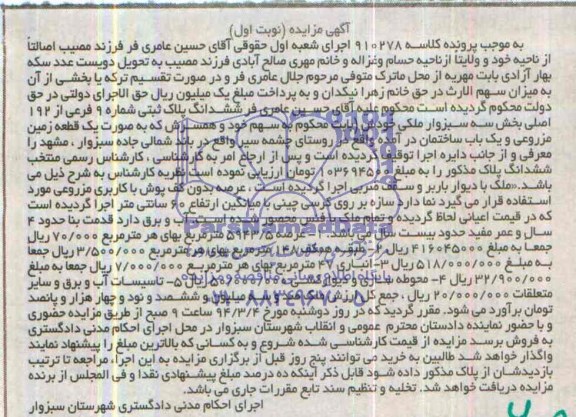 آگهی مزایده (نوبت اول)
به موجب پرونده کلاسه ۹۱۰۲۷۸ اجرای شعبه اول حقوقی آقای حسین عامری فر فرزند مصیب اصالتاً
از ناحیه خود و ولایتا ازناحیه حسام وغزاله و خانم مهری صالح آبادی فرزند مصیب به تحویل دویست عدد سکه
بهار آزادی بابت مهریه از محل ماترک متوفی مرحوم جلال عامری فر و در صورت تقسیم ترکه یا بخشی از آن
به میزان سهم الارث در حق خانم زهرا نیکدان و به پرداخت مبلغ یک میلیون ریال حق الاجرای دولتی در حق
دولت محکوم گردیده است محکوم علیه آقای حسین عامری فر ششدانگ پلاک ثبتی شماره ۹ فرعی از ۱۹۲
اصلی بخش سه سبزوار ملکی خودش بابت محکوم به سهم خود و همسرش که به صورت یک قطعه زمین
مزروعی و یک باب ساختمان در آمده واقع در روستای چشمه سیر واقع در باند شمالی جاده سبزوار ، مشهد را
معرفی و از جانب دایره اجرا توقیف گردیده است و پس از ارجاع امر به کارشناسی ، کارشناس رسمی منتخب
ششدانگ پلاک مذکور را به مبلغ تومان ارزیابی نموده است نظریه کارشناس به شرح ذیل می
باشد.«ملک با دیوار باربر و سقف ضربی اجرا گردیده است ، عرصه بدون کف پوش با کاربری مزروعی مورد
استفاده قرار می گیرد نما دارد سازه بر روی کرسی چینی با میانگین ارتفاع ۶۰ سانتی متر اجرا گردیده است
که در قیمت اعیانی لحاظ گردیده و تمام ملک با فنس محصور شده است و آب و برق دارد قدمت بنا حدود ۴
سال و عمر مفید حدود بیست سال می باشد. ۱- عرصه مترمربع بهای هر مترمربع ۷۰/۰۰۰ ریال
جمعا به مبلغ ۴۱۶۰۴۵۰۰۰ ریال ۲- طبقه همکف ۱۴۸ مترمربع بهای هر مترمربع ۳/۵۰۰/۰۰۰ ریال جمعا
به مبلغ ۵۱۸/۰۰۰/۰۰۰ ریال ۳- انباری ۴۷ مترمربع بهای هر مترمربع ۷/۰۰۰/۰۰۰ ریال جمعا به مبلغ
۳۲/۹۰۰/۰۰۰ ریال ۴- محوطه سازی و دیوارکشی ریال ۵- تاسیسات آب و برق و سایر
متعلقات ۲۰/۰۰۰/۰۰۰ ریال ، جمع کل ارزش میلیون و ششصد و نود و چهار هزار و پانصد
تومان برآورد می شود. مقرر گردید که در روز دوشنبه مورخ ۹۴/۳/۴ ساعت ۹ صبح از طریق مزایده حضوری
و با حضور نماینده دادستان محترم عمومی و انقلاب شهرستان سبزوار در محل اجرای احکام مدنی دادگستری
به فروش برسد مزایده از قیمت کارشناسی شده شروع و به کسانی که بالاترین مبلغ را پیشنهاد نمایند
واگذار خواهد شد طالبین به خرید می توانند پنج روز قبل از برگزاری مزایده به این اجرا، مراجعه تا ترتیب
بازدیدشان از پلاک مذکور داده شود قابل ذکر اینکه ده درصد مبلغ پیشنهادی نقدا و فی المجلس از برنده
مزایده دریافت خواهد شد. تخلیه و تنظیم سند تابع مقررات جاری می باشد.
اجرای احکام مدنی دادگستری شهرستان سبزوار